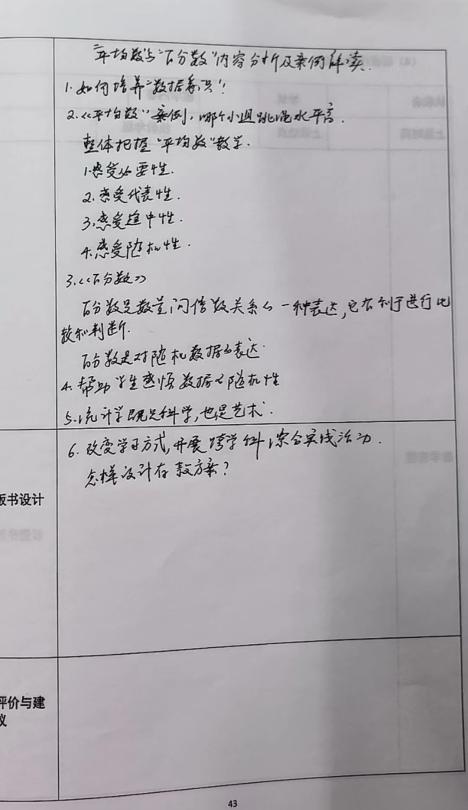 "平均数与"百分数"内容分析及案例解读.
1.如何培养"数据意识"?
2.《平均数》案例,哪个小组跳绳水平高.
整体把握"平均数"教学.
1.感受必要性.
2.感受代表性.
3.感受趋中性.
4.感受随机性.
3.《百分数》
百分数是数量间倍数关系的一种表达,它有利于进行比
较和判断.
百分数是对随机数据的表达.
4.帮助学生感悟数据的随机性
5.统计学既是科学,也是艺术.
6.改变学习方式,开展跨学科综合实践活动.
怎样设计存款方案?
版书设计
评价与建
议
43